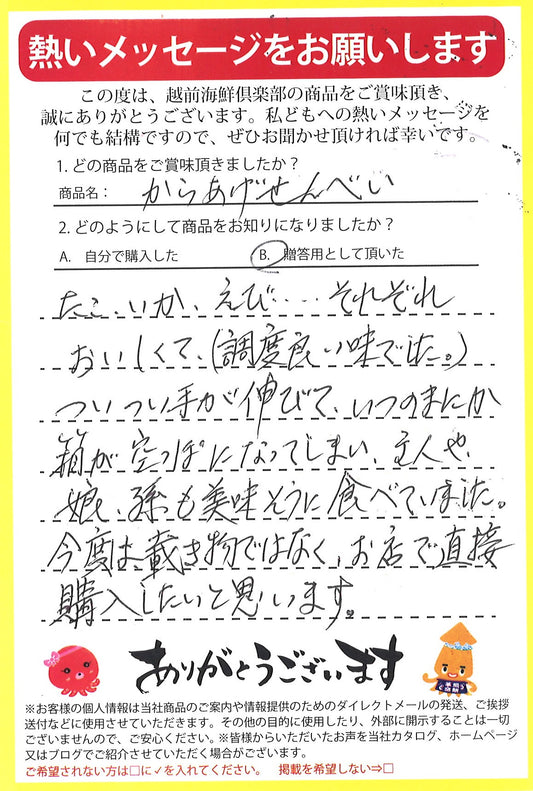 熱いメッセージをお願いします
この度は、越前海鮮倶楽部の商品をご賞味頂き、
誠にありがとうございます。私どもへの熱いメッセージを
何でも結構ですので、ぜひお聞かせ頂ければ幸いです。
1. どの商品をご賞味頂きましたか?
商品名: からあげせんべい
2. どのようにして商品をお知りになりましたか?
A. 自分で購入した B. 贈答用として頂いた
たこ、いか、えび‥‥それぞれ
おいしくて、(調度良い味でした。)
ついつい手が伸びて、いつのまにか
箱が空っぽになってしまい、主人や、
娘、孫も美味そうに食べていました。
今度は、戴き物ではなく、お店で直接
購入したいと思います。
ありがとうございます
※お客様の個人情報は当社商品のご案内や情報提供のためのダイレクトメールの発送、ご挨拶
送付などに使用させていただきます。その他の目的に使用したり、外部に開示することは一切
ございませんので、ご安心ください。※皆様からいただいたお声を当社カタログ、ホームページ
又はブログでご紹介させていただく場合がございます。
ご希望されない方は□に✓を入れてください。 掲載を希望しない⇒□